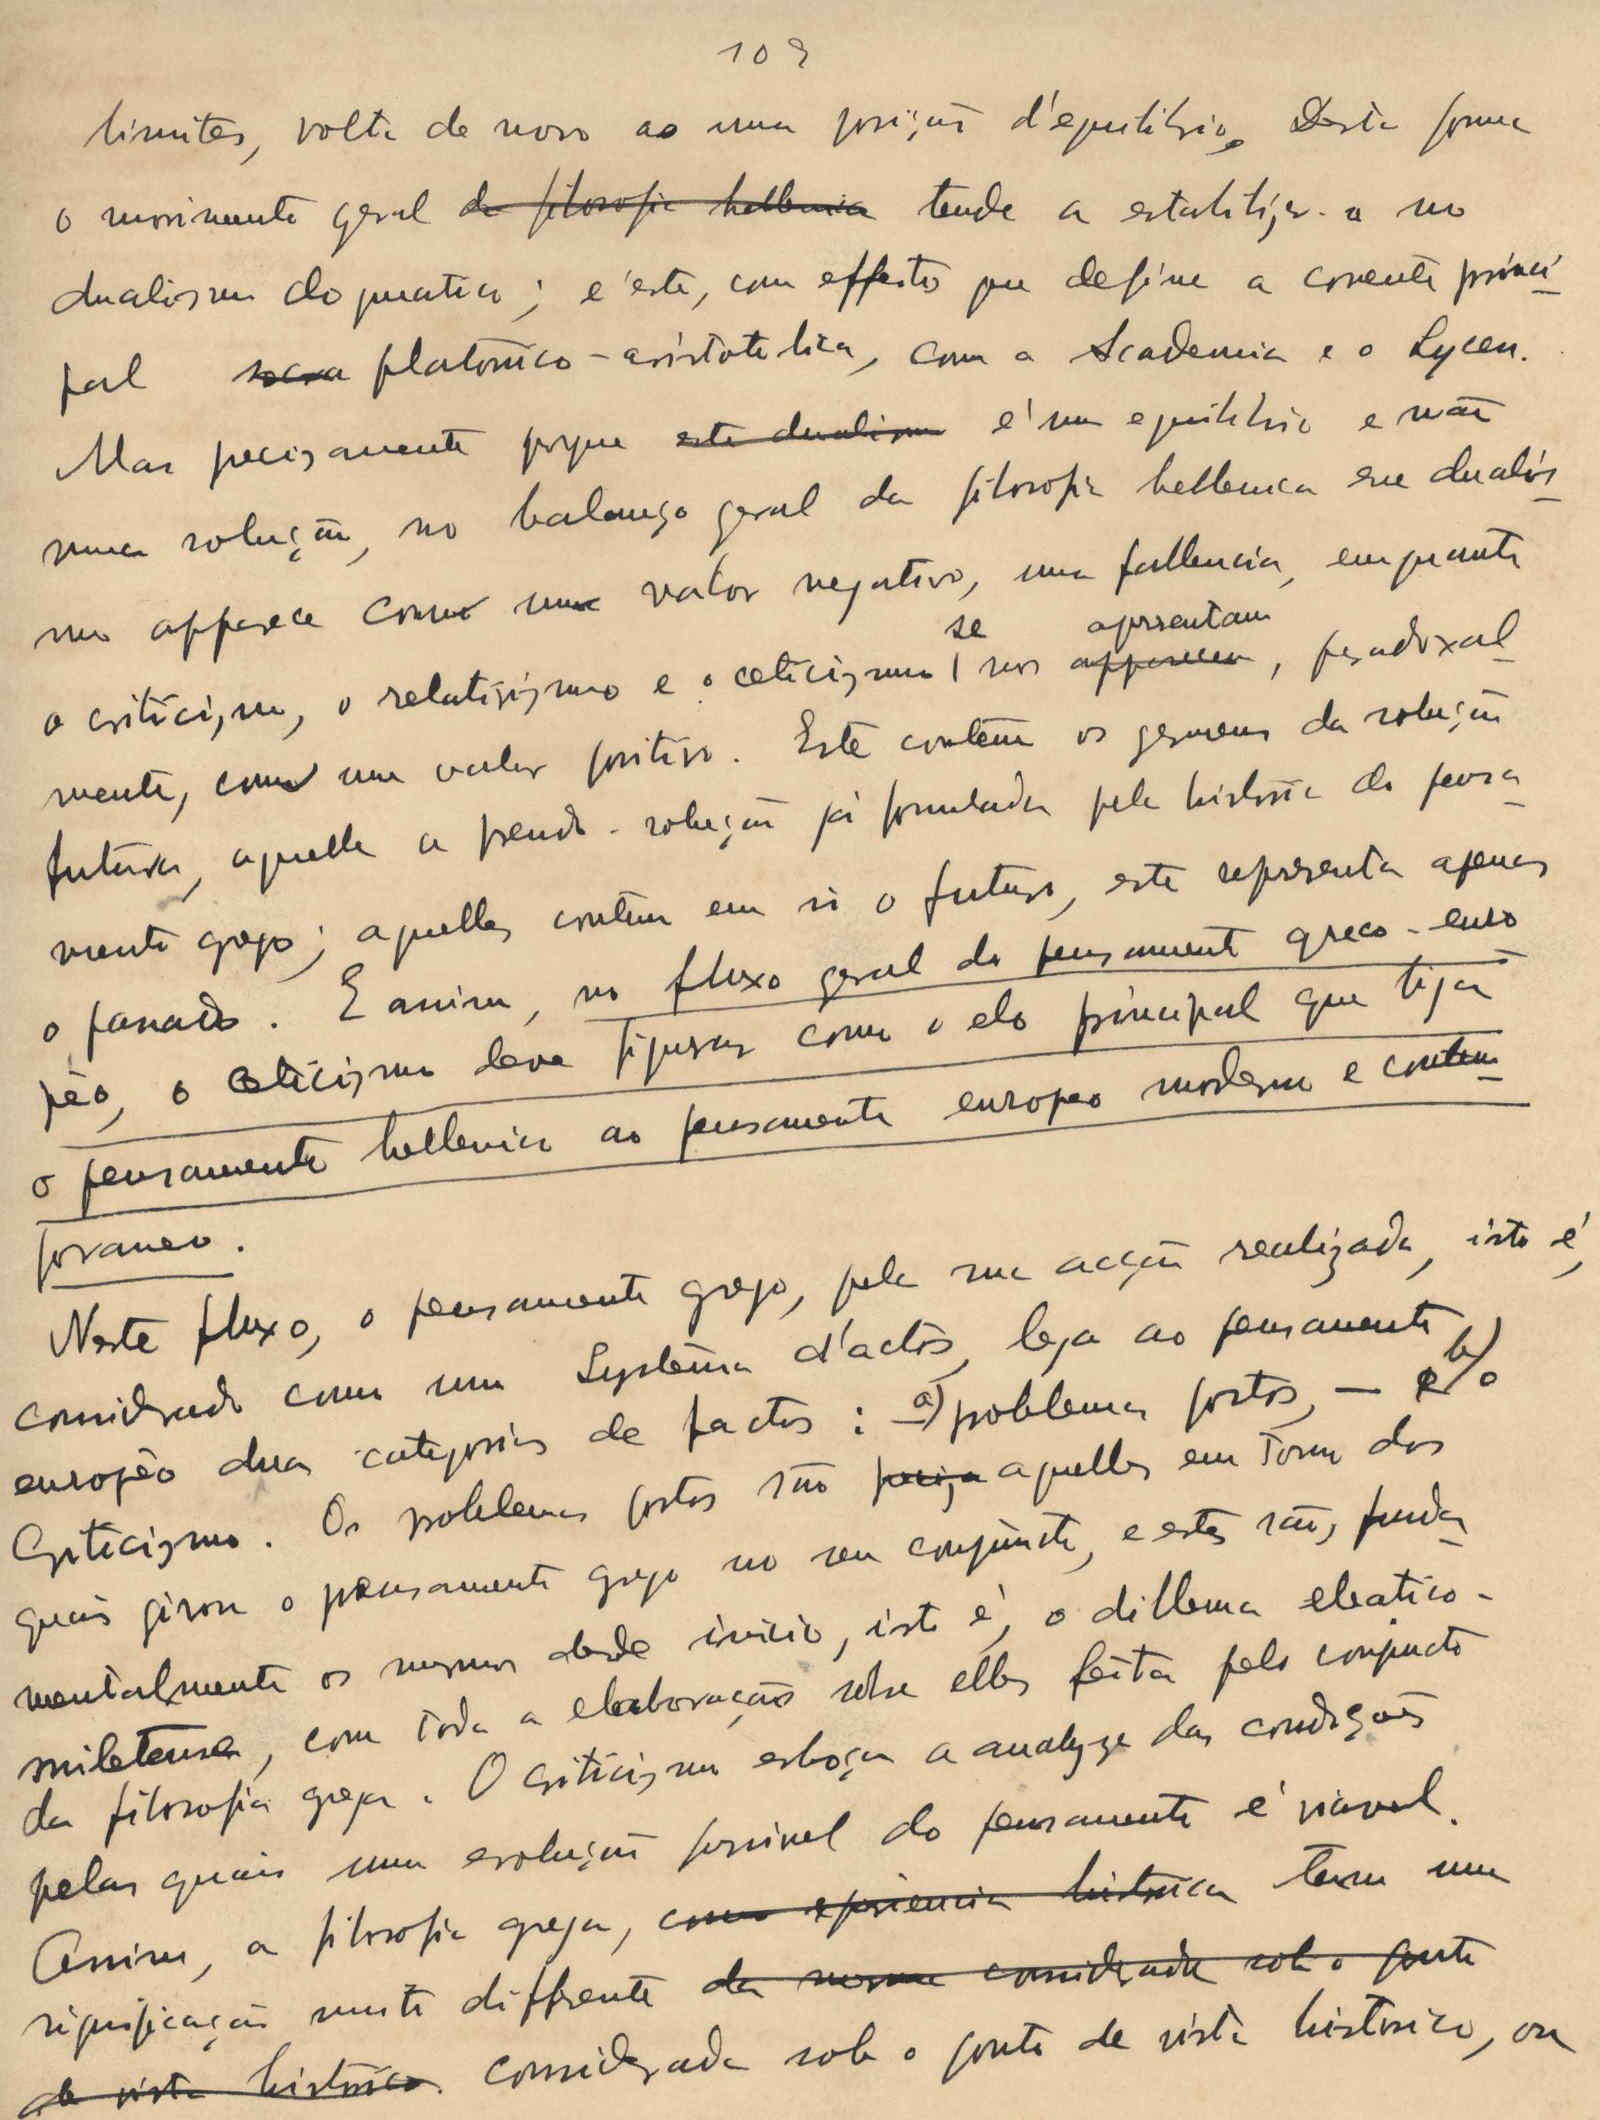 103
limites, volta de novo ao uma posição d'equilibrio. Desta forma
o movimento geral da filosofia hellenica tende a estabilizar-a no
dualismo dogmatico; e é este, com effeito que define a corrente princi-
pal socra platonico-aristotelica, com a Academia e o Lyceu.
Mas precisamente porque este dualismo é um equilibrio e não
uma solução, no balanço geral da filosofia hellenica esse dualis-
mo apparece como um valor negativo, uma fallencia, emquanto
se apresentam
o criticismo, o relativismo e o ceticismo nos apparecem, paradoxal-
mente, como um valor positivo. Este contém os germens da solução
futura, aquelle a pseudo-solução já formulada pela historia do pensa-
mento grego; aquelles contém em si o futuro, este representa apenas
o passado. E assim, no fluxo geral do pensamento greco-euro
pêo, o ceticismo deve figurar como o elo principal que liga
o pensamento hellenico ao pensamento europeo moderno e contem-
poraneo.
Neste fluxo, o pensamento grego, pela sua acção realizada, isto é,
considerado como um systema d'actos, lega ao pensamento
europêo duas categorias de factos: a) problemas postos, — e b) o
Criticismo. Os problemas postos são precisa aquelles em torno dos
quais girou o pensamento grego no seu conjuncto, e estes são, funda-
mentalmente os mesmos desde inicio, isto é, o dillema eleatico-
miletense, com toda a elaboração sobre elles feita pelo conjuncto
da filosofia grega. O criticismo esboça a analyse das condições
pelas quais uma evolução possivel do pensamento é viavel.
Assim, a filosofia grega, como experiencia historica tem uma
significação muito diffrente da mesma considerada sob o ponto
de vista historico. considerada sob o ponto de vista historico, ou